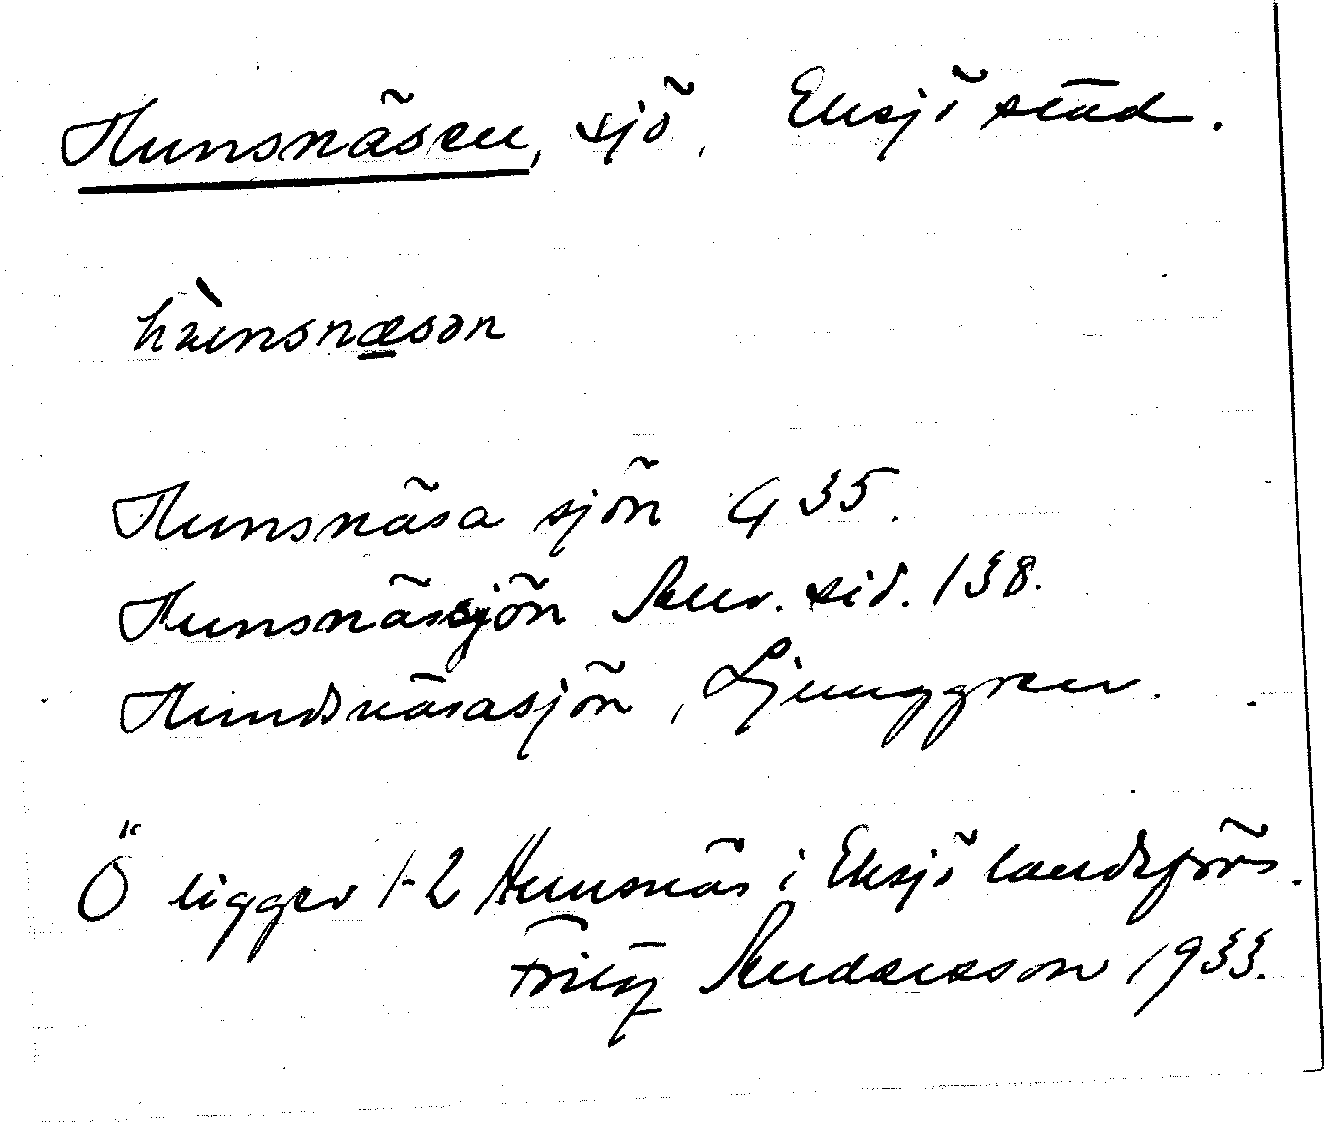 Hunsnäsen, sjö, Eksjö stad.
hùnsnæsən
Hunsnäsa sjön G 35.
Hunsnässjön Skuv. sid. 138.
Hundsnäsasjön, Ljunggren.
Ö ligger 1-2 Hunsnäs i Eksjö landsförs.
Fritz Andersson 1933.